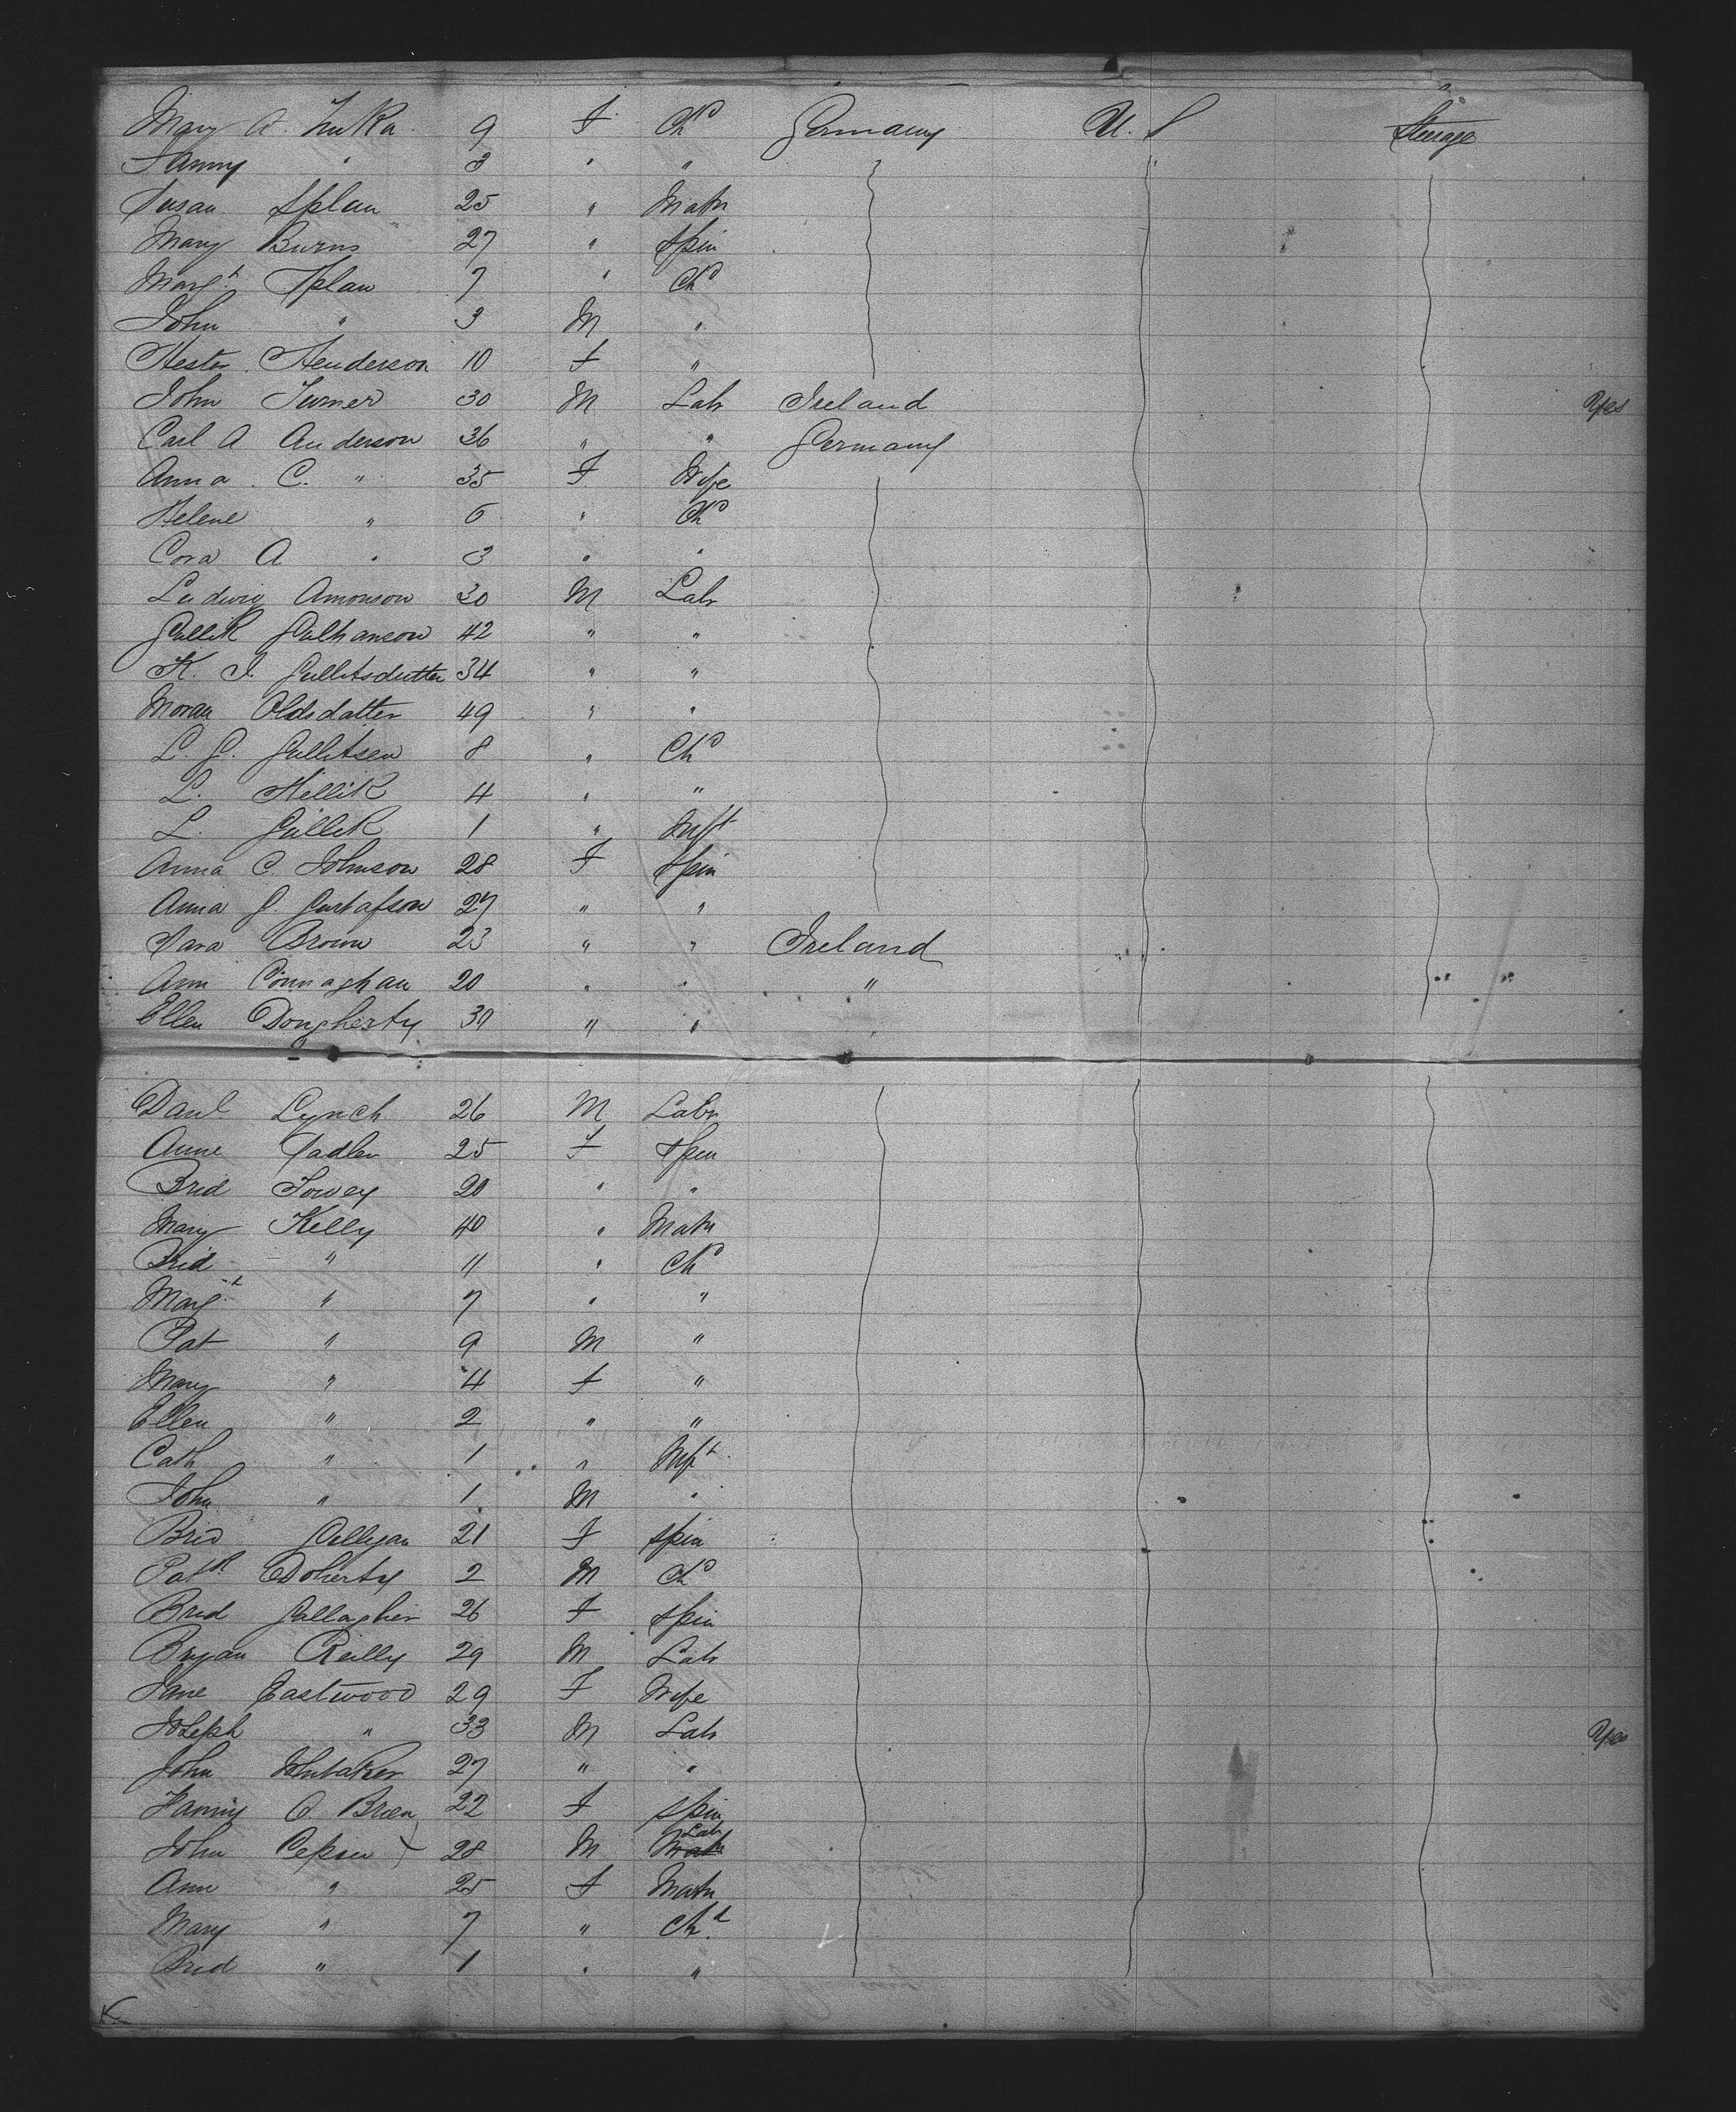 Mary A. Zuka 9 F Chd Germany U. S Steerage
Fanny " 3 " "
Susan Splan 25 " Matn
Mary Burns 27 " Spin
Margt Splan 7 " Chd
John " 3 M "
Hester Henderson 10 F "
John Turner 30 M Labr Ireland Yes
Carl A Anderson 36 " " Germany
Anna C. " 35 F Wife
Helene " 6 " Chd
Cora A " 3 " "
Ludwig Amonson 30 M Labr
Gullik Gulhanson 42 " "
K. I. Gullitsdutter 34 " "
Moran Oldsdatter 49 " "
L. G. Gullitsen 8 " Chd
L. Hellik 4 " "
L. Gullik 1 " Inft
Anna C. Johnson 28 F Spin
Anna G. Gustafson 27 " "
Sara Brown 23 " " Ireland
Ann Connaghan 20 " " "
Ellen Dougherty 30 " " "
Danl Lynch 26 M Labr
Anne Sadler 25 F Spin
Brid Towey 20 " "
Mary Kelly 40 " Matn
Brid " 11 " Chd
Margt " 7 " "
Pat " 9 M "
Mary " 4 F "
Ellen " 2 " "
Cath " 1 " Inft
John " 1 M "
Brid Galligan 21 F Spin
Patk Doherty 2 M Chd
Brid Gallagher 26 F Spin
Bryan Reilly 29 M Labr
Jane Eastwood 29 F Wife
Joseph " 33 M Labr Yes
John Whitaker 27 " "
Fanny O. Brien 22 F Spin
John 28 M Labr
Ann " 25 F Matn
Mary " 7 " Chd.
Brid " 1 " "